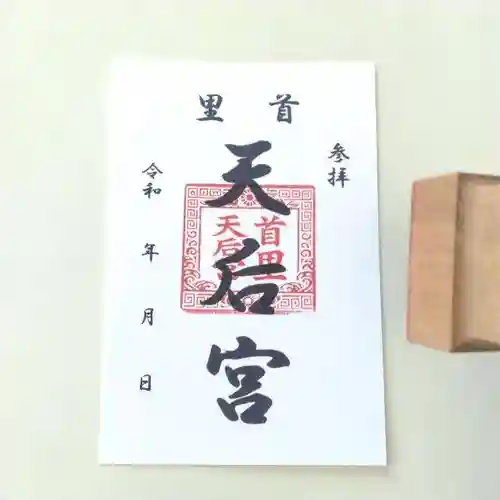 首里
参拝
天后宮
首里
天后宮
令和 年 月 日